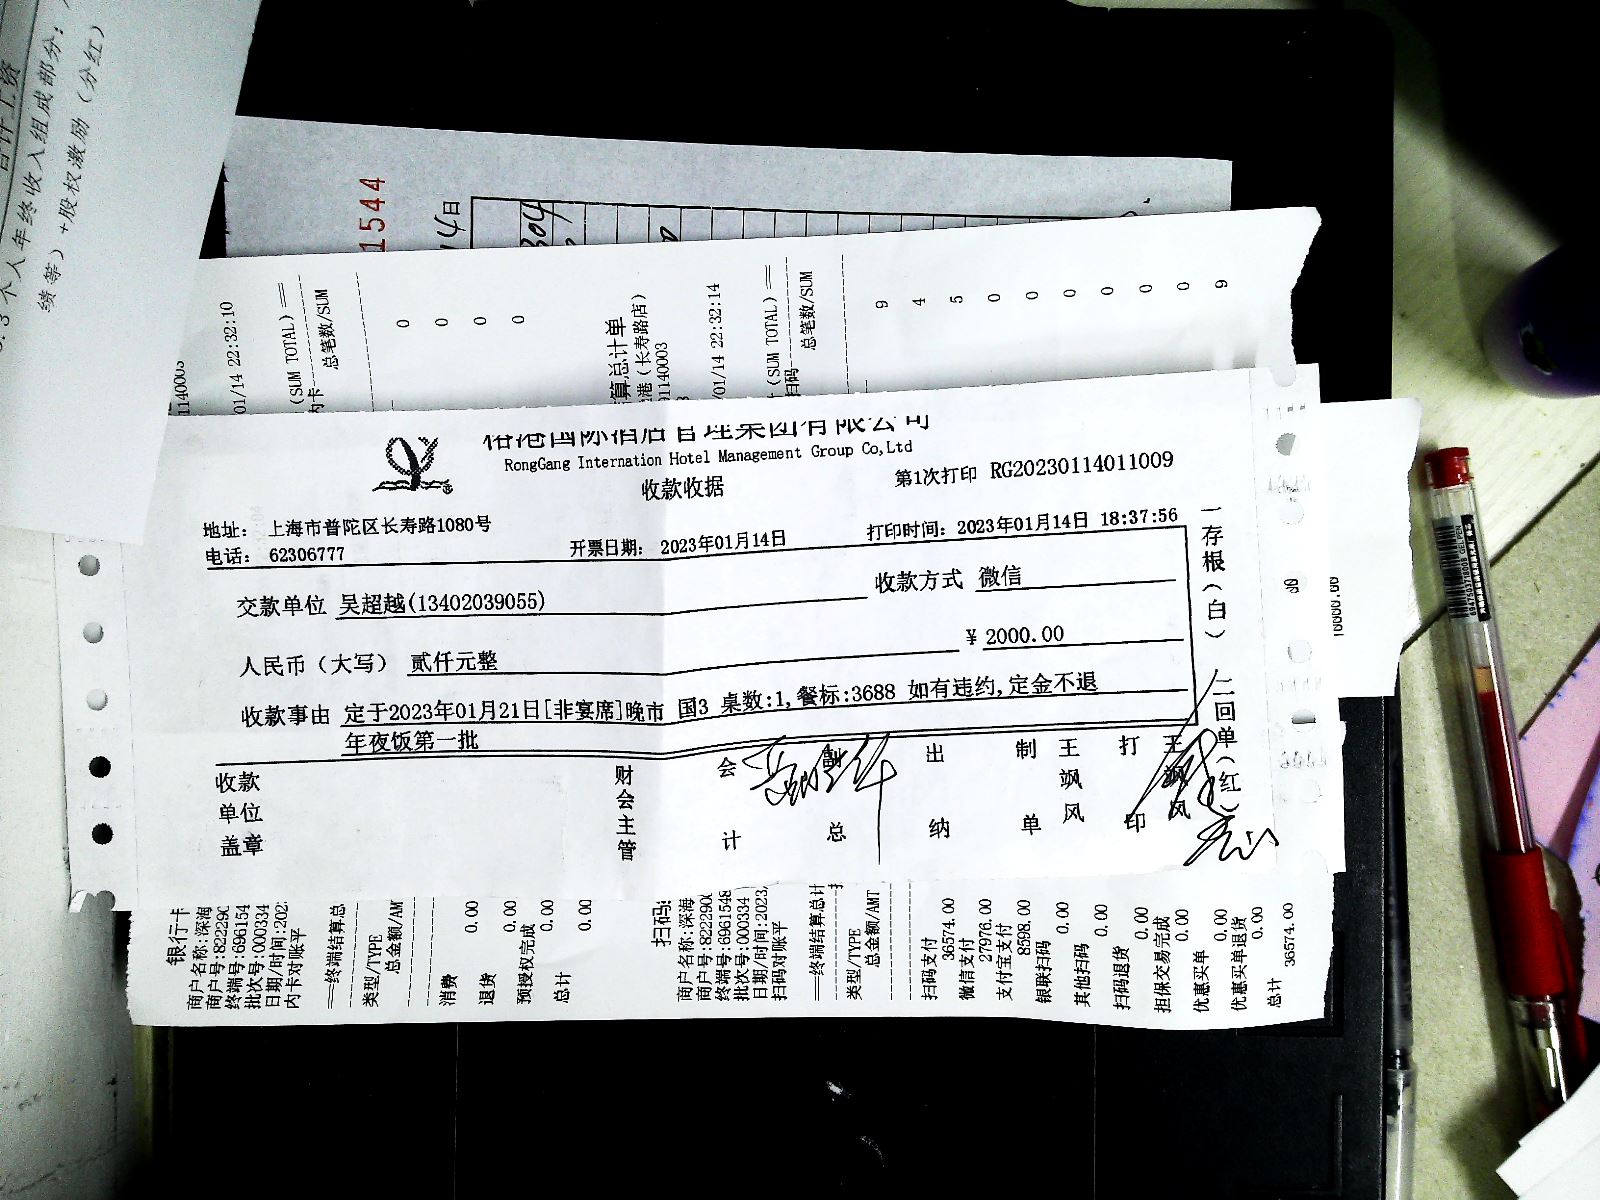 3个人年终收入组成部分:
绩等）+股权激励（分红）
1544
14日
1140003
01/14 22:32:10
(SUM TOTAL)
内卡
总笔数/SUM
0
0
0
0
算总计单
港（长寿路店）
91140003
/01/14 22:32:14
(SUM TOTAL)
扫码
总笔数/SUM
9
4
5
0
0
0
0
0
0
9
国际酒店管理集团有限公司
RongGang Internation Hotel Management Group Co,Ltd
收款收据
第1次打印 RG20230114011009
地址: 上海市普陀区长寿路1080号
电话: 62306777
开票日期: 2023年01月14日
打印时间: 2023年01月14日 18:37:56
交款单位 吴超越(13402039055)
收款方式 微信
人民币（大写） 贰仟元整
¥ 2000.00
收款事由 定于2023年01月21日[非宴席]晚市 国3 桌数:1,餐标:3688 如有违约,定金不退
年夜饭第一批
收款单位盖章
财会主管
会计
总
出纳
制单
王飒风
打印
王飒风
一存根(白)
二回单(红)
银行卡
商户名称:深海
商户号:822290
终端号:696154
批次号:000334
日期/时间:202
内卡对账平
==终端结算总
类型/TYPE
总金额/AMT
消费
0.00
退货
0.00
预授权完成
0.00
总计
0.00
扫码
商户名称:深海
商户号:822290
终端号:6961548
批次号:000334
日期/时间:2023
扫码对账平
==终端结算总计
类型/TYPE
总金额/AMT
扫码支付
36574.00
微信支付
27976.00
支付宝支付
8598.00
银联扫码
0.00
其他扫码
0.00
扫码退货
0.00
担保交易完成
0.00
优惠买单
0.00
优惠买单退货
0.00
总计
36574.00